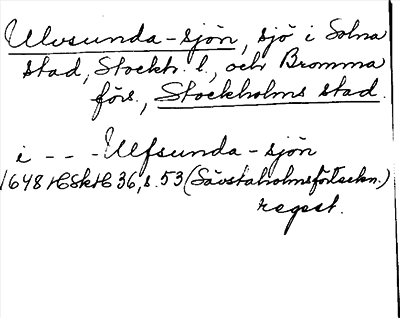 Ulvsunda-sjön, sjö i Solna
stad, Stockh. l., och Bromma
förs., Stockholms stad.
i - - - Ulfsunda-sjön
1648 HSkH 36, s. 53 (Sävstaholmsförteckn.)
regest.